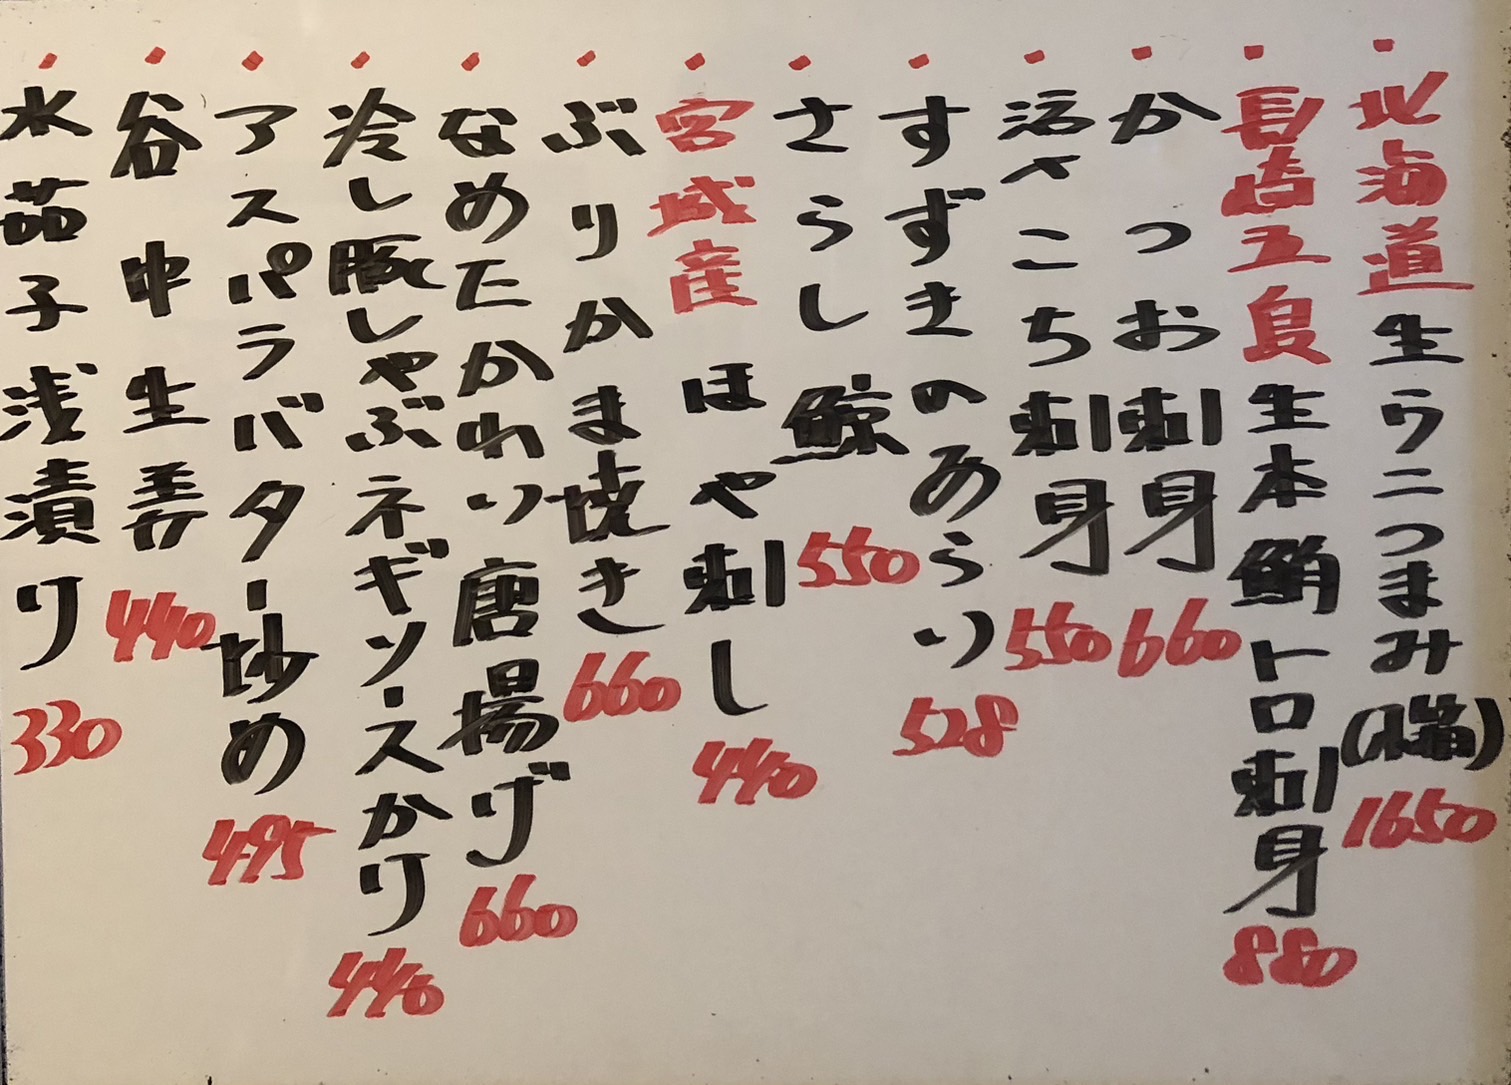 ・北海道生ウニつまみ(小箱)1650
・長崎五島生本鮪トロ刺身880
・かつお刺身660
・活〆こち刺身550
・すずきのあらい528
・さらし鯨550
・宮城産ほや刺し440
・ぶりかま焼き660
・なめたかれい唐揚げ660
・冷し豚しゃぶネギソースかけ440
・アスパラバター炒め495
・谷中生姜440
・水茄子浅漬け330